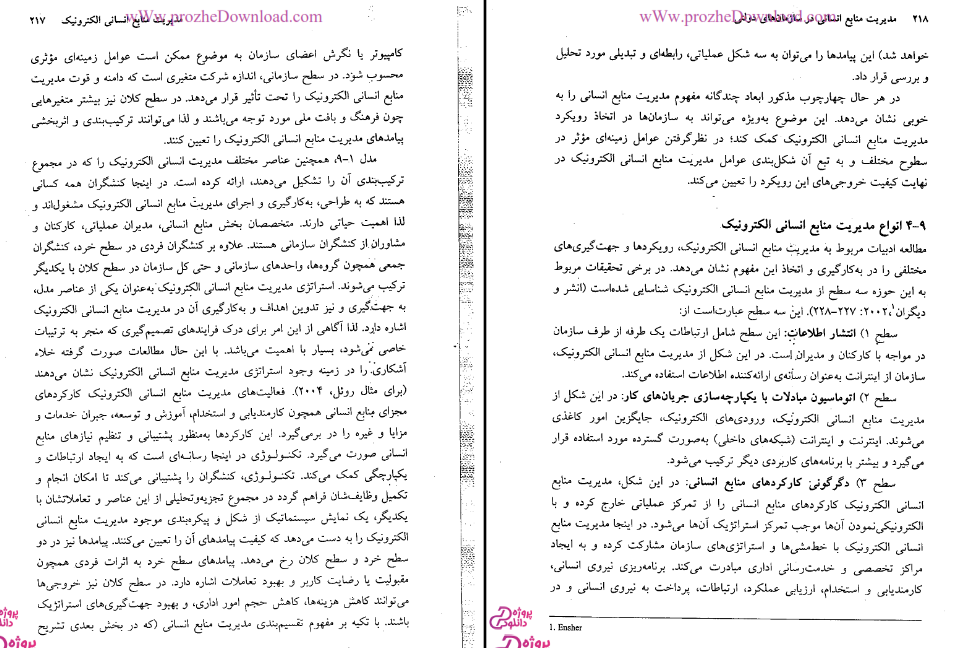 مدیریت منابع انسانی الکترونیک ۲۱۷
www.prozheDownload.com
کامپیوتر یا نگرش اعضای سازمان به موضوع ممکن است عوامل زمینه‌ای مؤثری
محسوب شود. در سطح سازمانی، اندازه شرکت متغیری است که دامنه و قوت مدیریت
منابع انسانی الکترونیک را تحت تأثیر قرار می‌دهد. در سطح کلان نیز بیشتر متغیرهایی
چون فرهنگ و بافت ملی مورد توجه می‌باشند و لذا می‌توانند ترکیب‌بندی و اثربخشی
پیامدهای مدیریت منابع انسانی الکترونیک را تعیین کنند.
مدل ۱-۹، همچنین عناصر مختلف مدیریت انسانی الکترونیک را که در مجموع
ترکیب‌بندی آن را تشکیل می‌دهند، ارائه کرده است. در اینجا کنشگران همه کسانی
هستند که به طراحی، به‌کارگیری و اجرای مدیریت منابع انسانی الکترونیک مشغول‌اند و
لذا اهمیت حیاتی دارند. متخصصان بخش منابع انسانی، مدیران عملیاتی، کارکنان و
مشاوران از کنشگران سازمانی هستند. علاوه بر کنشگران فردی در سطح خرد، کنشگران
جمعی همچون گروه‌ها، واحدهای سازمانی و حتی کل سازمان در سطح کلان با یکدیگر
ترکیب می‌شوند. استراتژی مدیریت منابع انسانی الکترونیک به‌عنوان یکی از عناصر مدل،
به جهت‌گیری و نیز تدوین اهداف و به‌کارگیری آن در مدیریت منابع انسانی الکترونیک
اشاره دارد. لذا آگاهی از این امر برای درک فرایندهای تصمیم‌گیری که منجر به ترتیبات
خاصی می‌شود، بسیار با اهمیت می‌باشد. با این حال مطالعات صورت گرفته خلاء
آشکاری را در زمینه وجود استراتژی مدیریت منابع انسانی الکترونیک نشان می‌دهند
(برای مثال روئل، ۲۰۰۴). فعالیت‌های مدیریت منابع انسانی الکترونیک کارکردهای
مجزای منابع انسانی همچون کارمندیابی و استخدام، آموزش و توسعه، جبران خدمات و
مزایا و غیره را در برمی‌گیرد. این کارکردها به‌منظور پشتیبانی و تنظیم نیازهای منابع
انسانی صورت می‌گیرد. تکنولوژی در اینجا رسانه‌ای است که به ایجاد ارتباطات و
یکپارچگی کمک می‌کند. تکنولوژی، کنشگران را پشتیبانی می‌کند تا امکان انجام و
تکمیل وظایف‌شان فراهم گردد در مجموع تجزیه‌وتحلیلی از این عناصر و تعاملاتشان با
یکدیگر، یک نمایش سیستماتیک از شکل و پیکره‌بندی موجود مدیریت منابع انسانی
الکترونیک را به دست می‌دهد که کیفیت پیامدهای آن را تعیین می‌کنند. پیامدها نیز در دو
سطح خرد و سطح کلان رخ می‌دهد. پیامدهای سطح خرد به اثرات فردی همچون
مقبولیت یا رضایت کاربر و بهبود تعاملات اشاره دارد. در سطح کلان نیز خروجی‌ها
می‌توانند کاهش هزینه‌ها، کاهش حجم امور اداری، و بهبود جهت‌گیری‌های استراتژیک
باشند. با تکیه بر مفهوم تقسیم‌بندی مدیریت منابع انسانی (که در بخش بعدی تشریح
۲۱۸ مدیریت منابع انسانی در سازمان‌های دولتی
www.prozheDownload.com
خواهد شد) این پیامدها را می‌توان به سه شکل عملیاتی، رابطه‌ای و تبدیلی مورد تحلیل
و بررسی قرار داد.
در هر حال چهارچوب مذکور ابعاد چندگانه مفهوم مدیریت منابع انسانی را به
خوبی نشان می‌دهد. این موضوع به‌ویژه می‌تواند به سازمان‌ها در اتخاذ رویکرد
مدیریت منابع انسانی الکترونیک کمک کند؛ در نظرگرفتن عوامل زمینه‌ای مؤثر در
سطوح مختلف و به تبع آن شکل‌بندی عوامل مدیریت منابع انسانی الکترونیک در
نهایت کیفیت خروجی‌های این رویکرد را تعیین می‌کند.
۴-۹ انواع مدیریت منابع انسانی الکترونیک
مطالعه ادبیات مربوط به مدیریت منابع انسانی الکترونیک، رویکردها و جهت‌گیری‌های
مختلفی را در به‌کارگیری و اتخاذ این مفهوم نشان می‌دهد. در برخی تحقیقات مربوط
به این حوزه سه سطح از مدیریت منابع انسانی الکترونیک شناسایی شده‌است (انشر و
دیگران¹، ۲۰۰۲: ۲۲۷-۲۲۸). این سه سطح عبارت‌است از:
سطح ۱) انتشار اطلاعات: این سطح شامل ارتباطات یک طرفه از طرف سازمان
در مواجه با کارکنان و مدیران است. در این شکل از مدیریت منابع انسانی الکترونیک،
سازمان از اینترانت به‌عنوان رسانه‌ی ارائه‌کننده اطلاعات استفاده می‌کند.
سطح ۲) اتوماسیون مبادلات با یکپارچه‌سازی جریان‌های کار: در این شکل از
مدیریت منابع انسانی الکترونیک، ورودی‌های الکترونیک، جایگزین امور کاغذی
می‌شوند. اینترنت و اینترانت (شبکه‌های داخلی) به‌صورت گسترده مورد استفاده قرار
می‌گیرد و بیشتر با برنامه‌های کاربردی دیگر ترکیب می‌شود.
سطح ۳) دگرگونی کارکردهای منابع انسانی: در این شکل، مدیریت منابع
انسانی الکترونیک کارکردهای منابع انسانی را از تمرکز عملیاتی خارج کرده و با
الکترونیکی‌نمودن آن‌ها موجب تمرکز استراتژیک آن‌ها می‌شود. در اینجا مدیریت منابع
انسانی الکترونیک با خط‌مشی‌ها و استراتژی‌های سازمان مشارکت کرده و به ایجاد
مراکز تخصصی و خدمت‌رسانی اداری مبادرت می‌کند. برنامه‌ریزی نیروی انسانی،
کارمندیابی و استخدام، ارزیابی عملکرد، ارتباطات، پرداخت به نیروی انسانی و در
1. Ensher
پروژه
دانلود